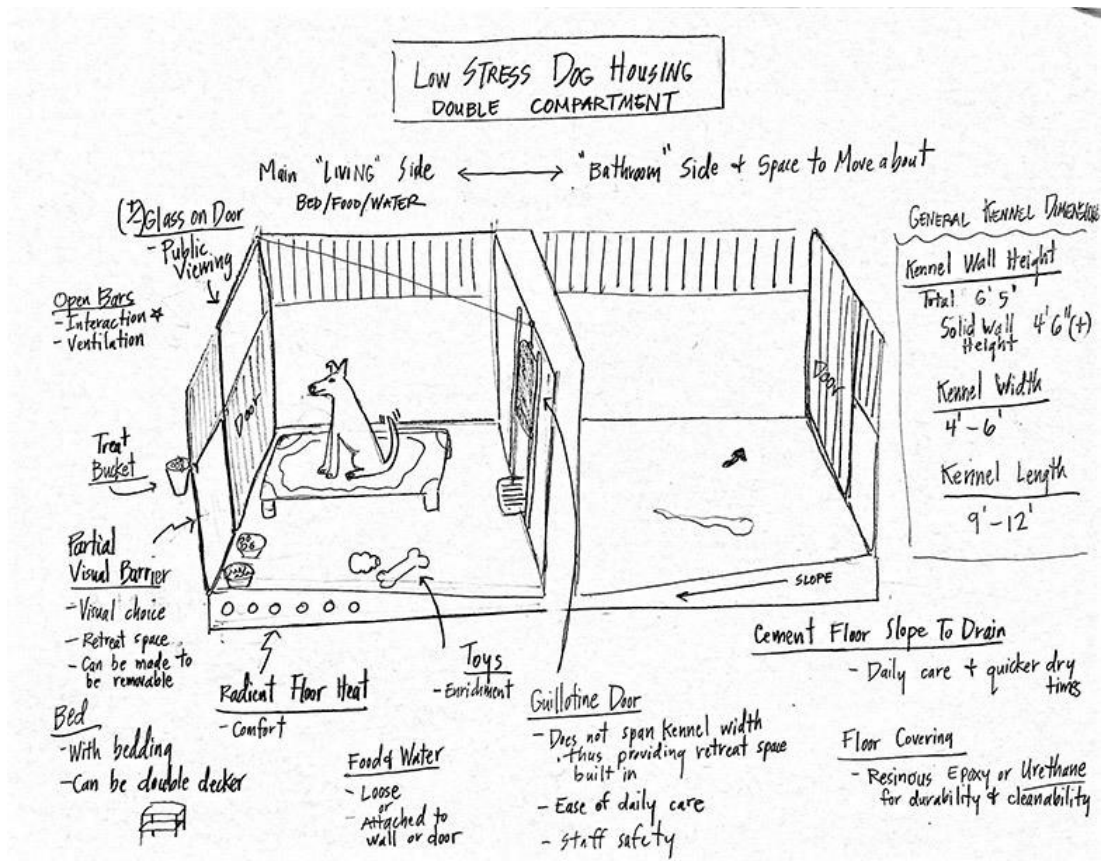 Low STRESS DOG HOUSING
DOUBLE COMPARTMENT
Main "LIVING" Side ⟷ "Bathroom" Side & Space to Move about
BED/FOOD/WATER
(±)Glass on Door
- Public Viewing
Open Bars
- Interaction *
- Ventilation
Treat
Bucket
Partial
Visual Barrier
- Visual choice
- Retreat space
- Can be made to
be removable
Bed
- With bedding
- Can be double decker
DOOR
DOOR
SLOPE
Radient Floor Heat
- Comfort
Toys
- Enrichment
Food & Water
- Loose
or
- Attached to
wall or door
Guillotine Door
- Does not span Kennel width
. thus providing retreat space
built in
- Ease of daily care
- Staff safety
Cement Floor Slope To Drain
- Daily care & quicker dry
times
Floor Covering
- Resinous Epoxy or Urethane
for durability & cleanability
GENERAL KENNEL DIMENSIONS
Kennel Wall Height
Total 6' 5"
Solid Wall 4' 6"(+)
Height
Kennel Width
4' - 6'
Kennel Length
9' - 12'